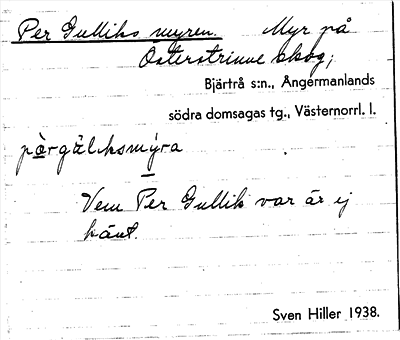 Per Gulliks myren. Myr på
Österstrinne skog;
Bjärtrå s:n., Ångermanlands
södra domsagas tg., Västernorrl. l.
pàrgälıksmýra
Vem Per Gullik var är ej
känt.
Sven Hiller 1938.